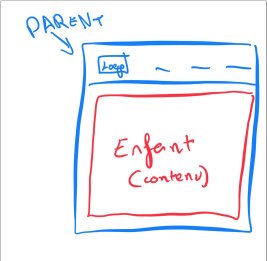 PARENT
Logo
Enfant
(contenu)